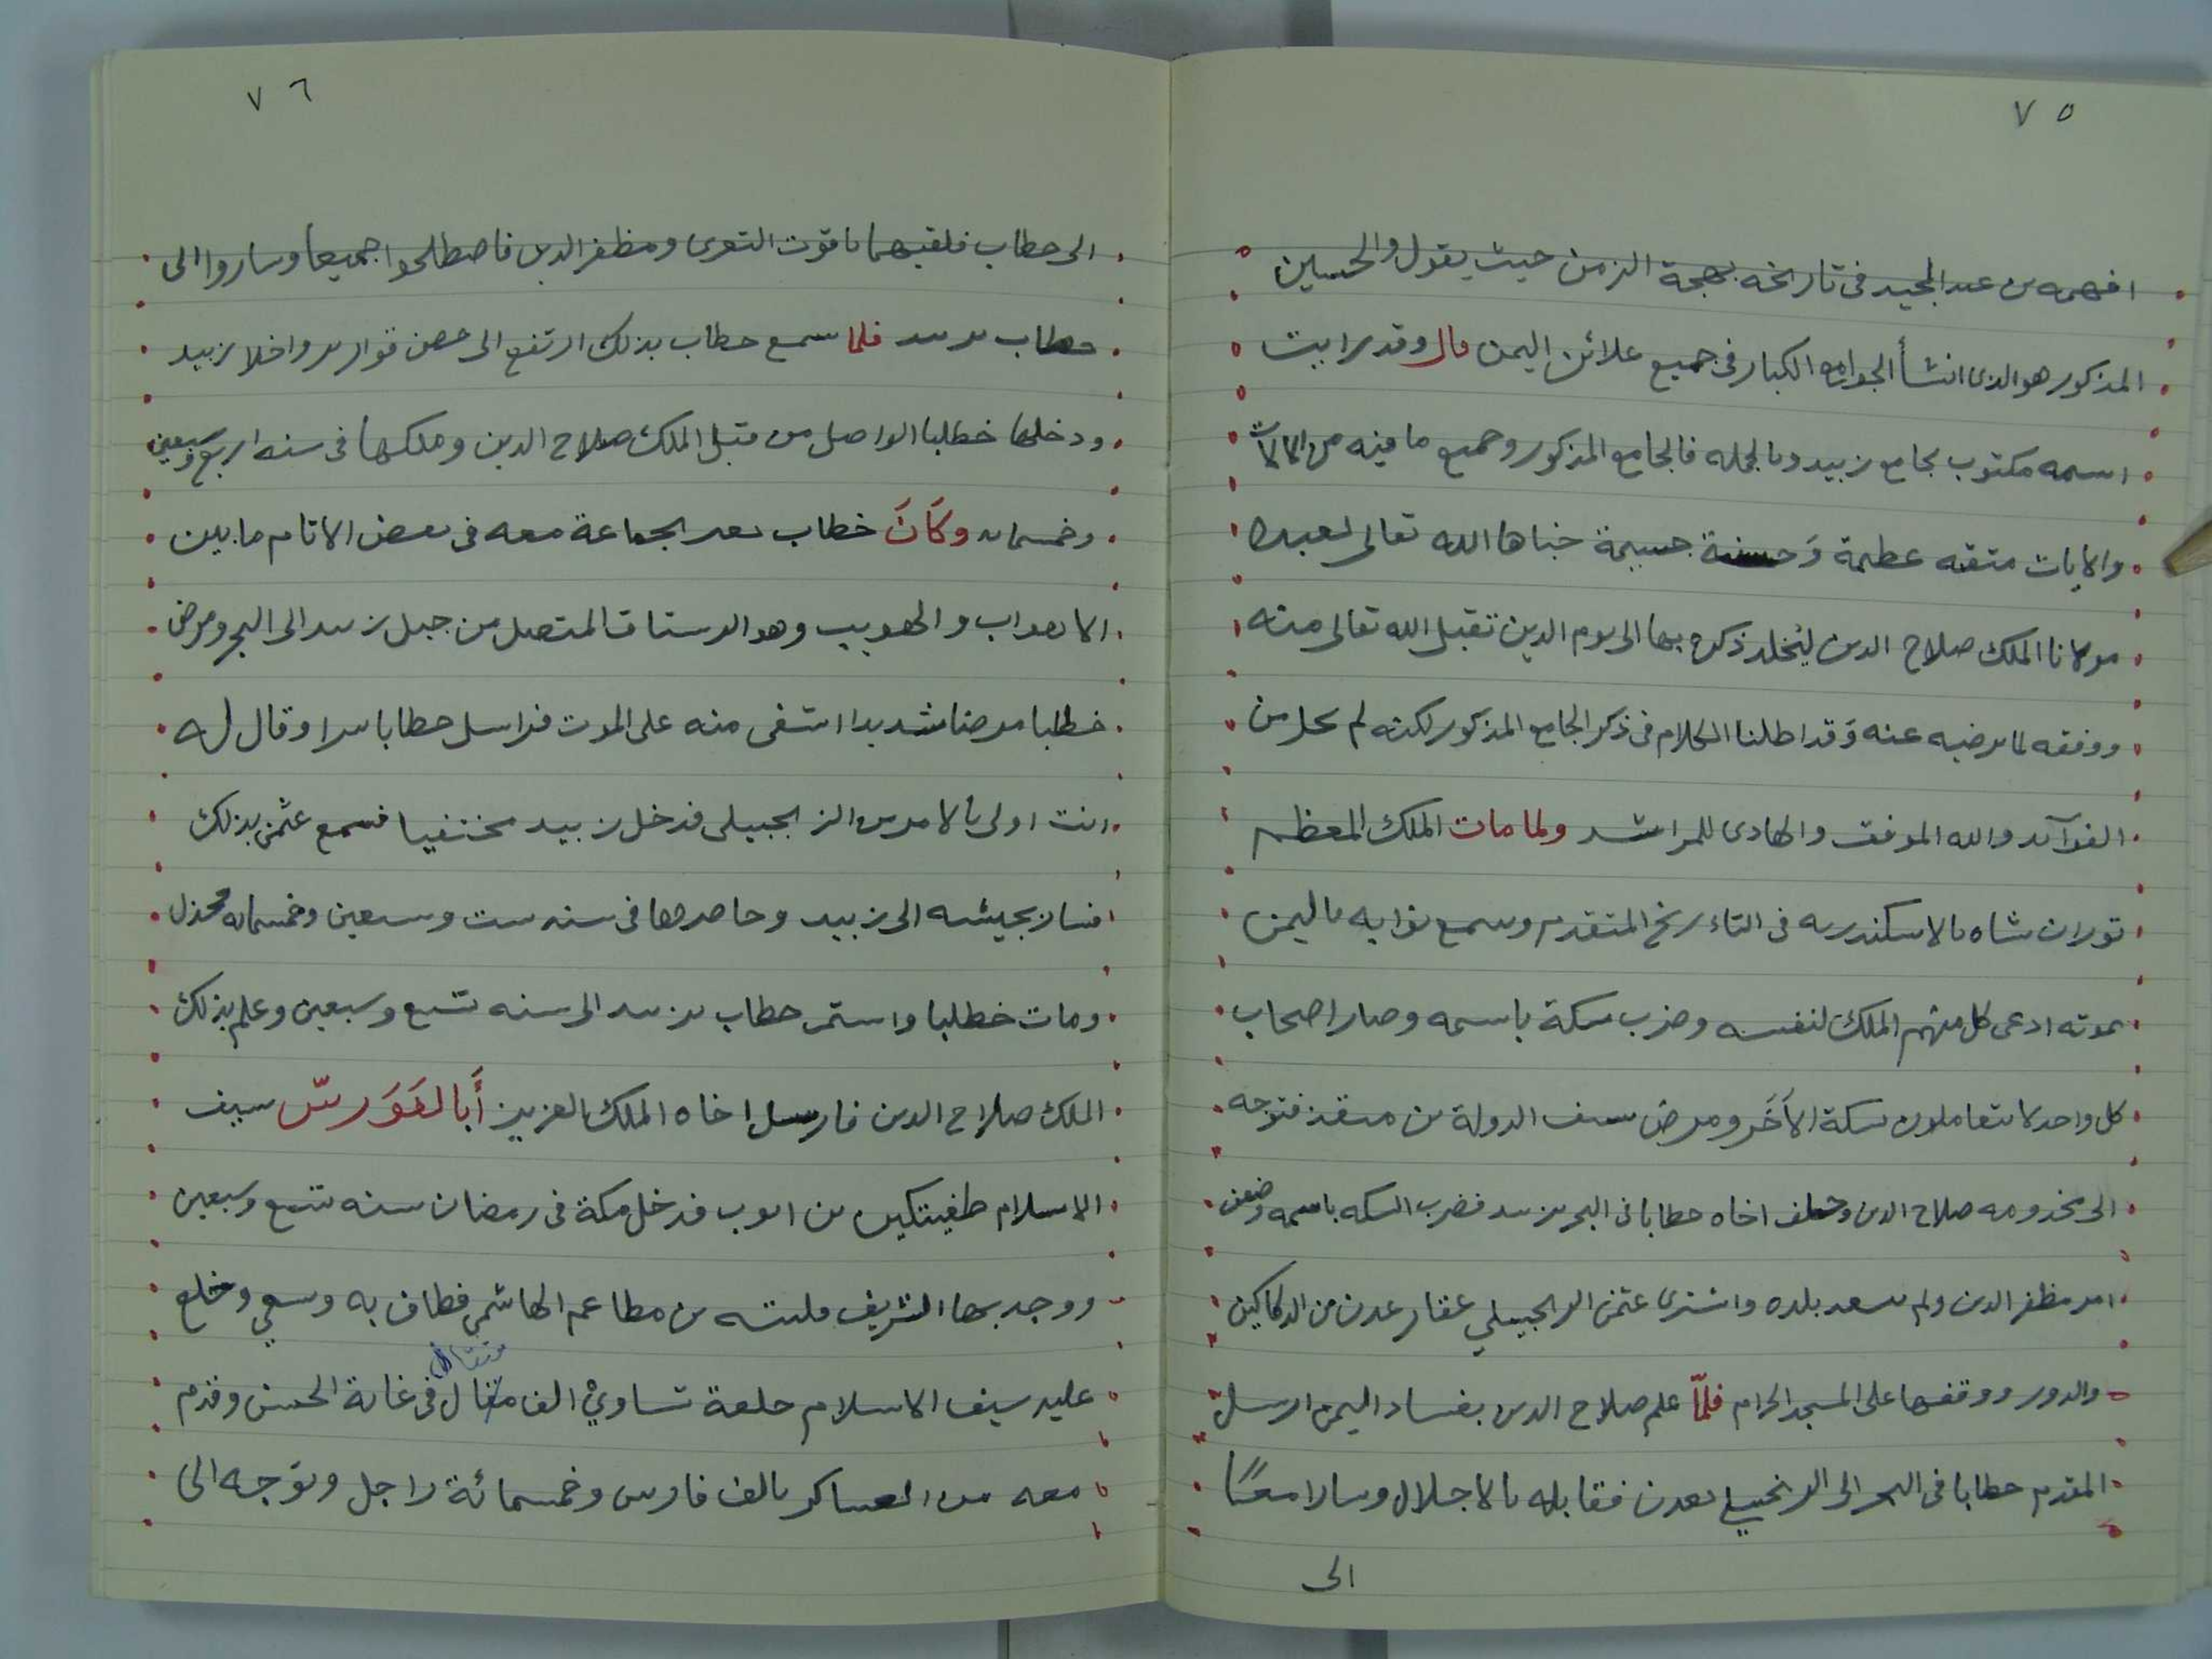 ٧٥
افهمه بن عبد المجيد فى تاريخه بهجة الزمن حيث يقول والحسين
المذكور هو الذى انشأ الجوامع الكبار فى جميع علائن اليمن قال وقد رايت
اسمه مكتوب بجامع زبيد وبالجمله فالجامع المذكور وجميع ما فيه من
والايات متقه عظيمة وَحسنة جسيمة خباها الله تعالى لعبده
مولانا الملك صلاح الدين ليُخلد ذكره بها الى يوم الدين تقبل الله تعالى منه
ووفقه لما يرضيه عنه وَقد اطلنا الكلام فى ذكر الجامع المذكور لكنه لم يخل من
الفوآئد والله الموفق والهادى للمراشد ولما مات الملك المعظم
توران شاه بالاسكندريه فى التاءريخ المتقدم وسمع نوابه باليمن
بموته ادعى كل منهم الملك لنفسه وضرب سكة باسمه وصار اصحاب
كل واحد لا يتعاملون بسكة الاَخَر ومرض سيف الدولة بن منقذ فتوجه
الى مخدومه صلاح الدين وخلف اخاه حطابا فى البحر بزبيد فضرب السكه باسمه وضعف
امر مظفر الدين ولم يتعد بلده واشترى عثمن الزنجبيلي عقار عدن من الدكاكين
والدور ووقفها على المسجد الحرام فلمّا علم صلاح الدين بفساد اليمن ارسل
المقدم حطابا فى البحر الى الزنجبيلي بعدن فقابله بالاجلال وسارا معًا
الى
٧٦
الى حطاب فلقيهما ياقوت التعزى ومظفر الدين فاصطلحوا جميعا وساروا الى
حطاب بزبيد فلما سمع حطاب بذلك ارتفع الى حصن قوارير واخلا زبيد
ودخلها خطلبا الواصل من قبل الملك صلاح الدين وملكها فى سنه اربع وسبعين
وخمسمايه وكَانَ خطاب بعد الجماعة معه فى بعض الايام ما بين
الاهواب والهويب وهو الرستاق المتصل من جبل زبيد الى البحر ومرض
خطلبا مرضا شديدا اشفى منه على الموت فراسل حطابا سرا وقال له
انت اولى بالامر من الزنجبيلى فدخل زبيد مختفيا فسمع عثمن بذلك
فسار بجيشه الى زبيد وحاصرها فى سنه ست وسبعين وخمسمايه فخذل
ومات خطلبا واستمر حطاب بزبيد الى سنه تسع وسبعين وعلم بذلك
الملك صلاح الدين فارسل اخاه الملك العزيز أَبا الفَوَرسّ سيف
الاسلام طغيتكين بن ايوب فدخل مكة فى رمضان سنه تسع وسبعين
ووجد بها الشريف فليته بن مطاعم الهاشمي فطاف به وسعي وخلع
مثقال
عليه سيف الاسلام خلعة تساويْ الف مقال فى غاية الحسن وقدم
معه من العساكر بالف فارس وخمسمائة راجل وتوجه الى